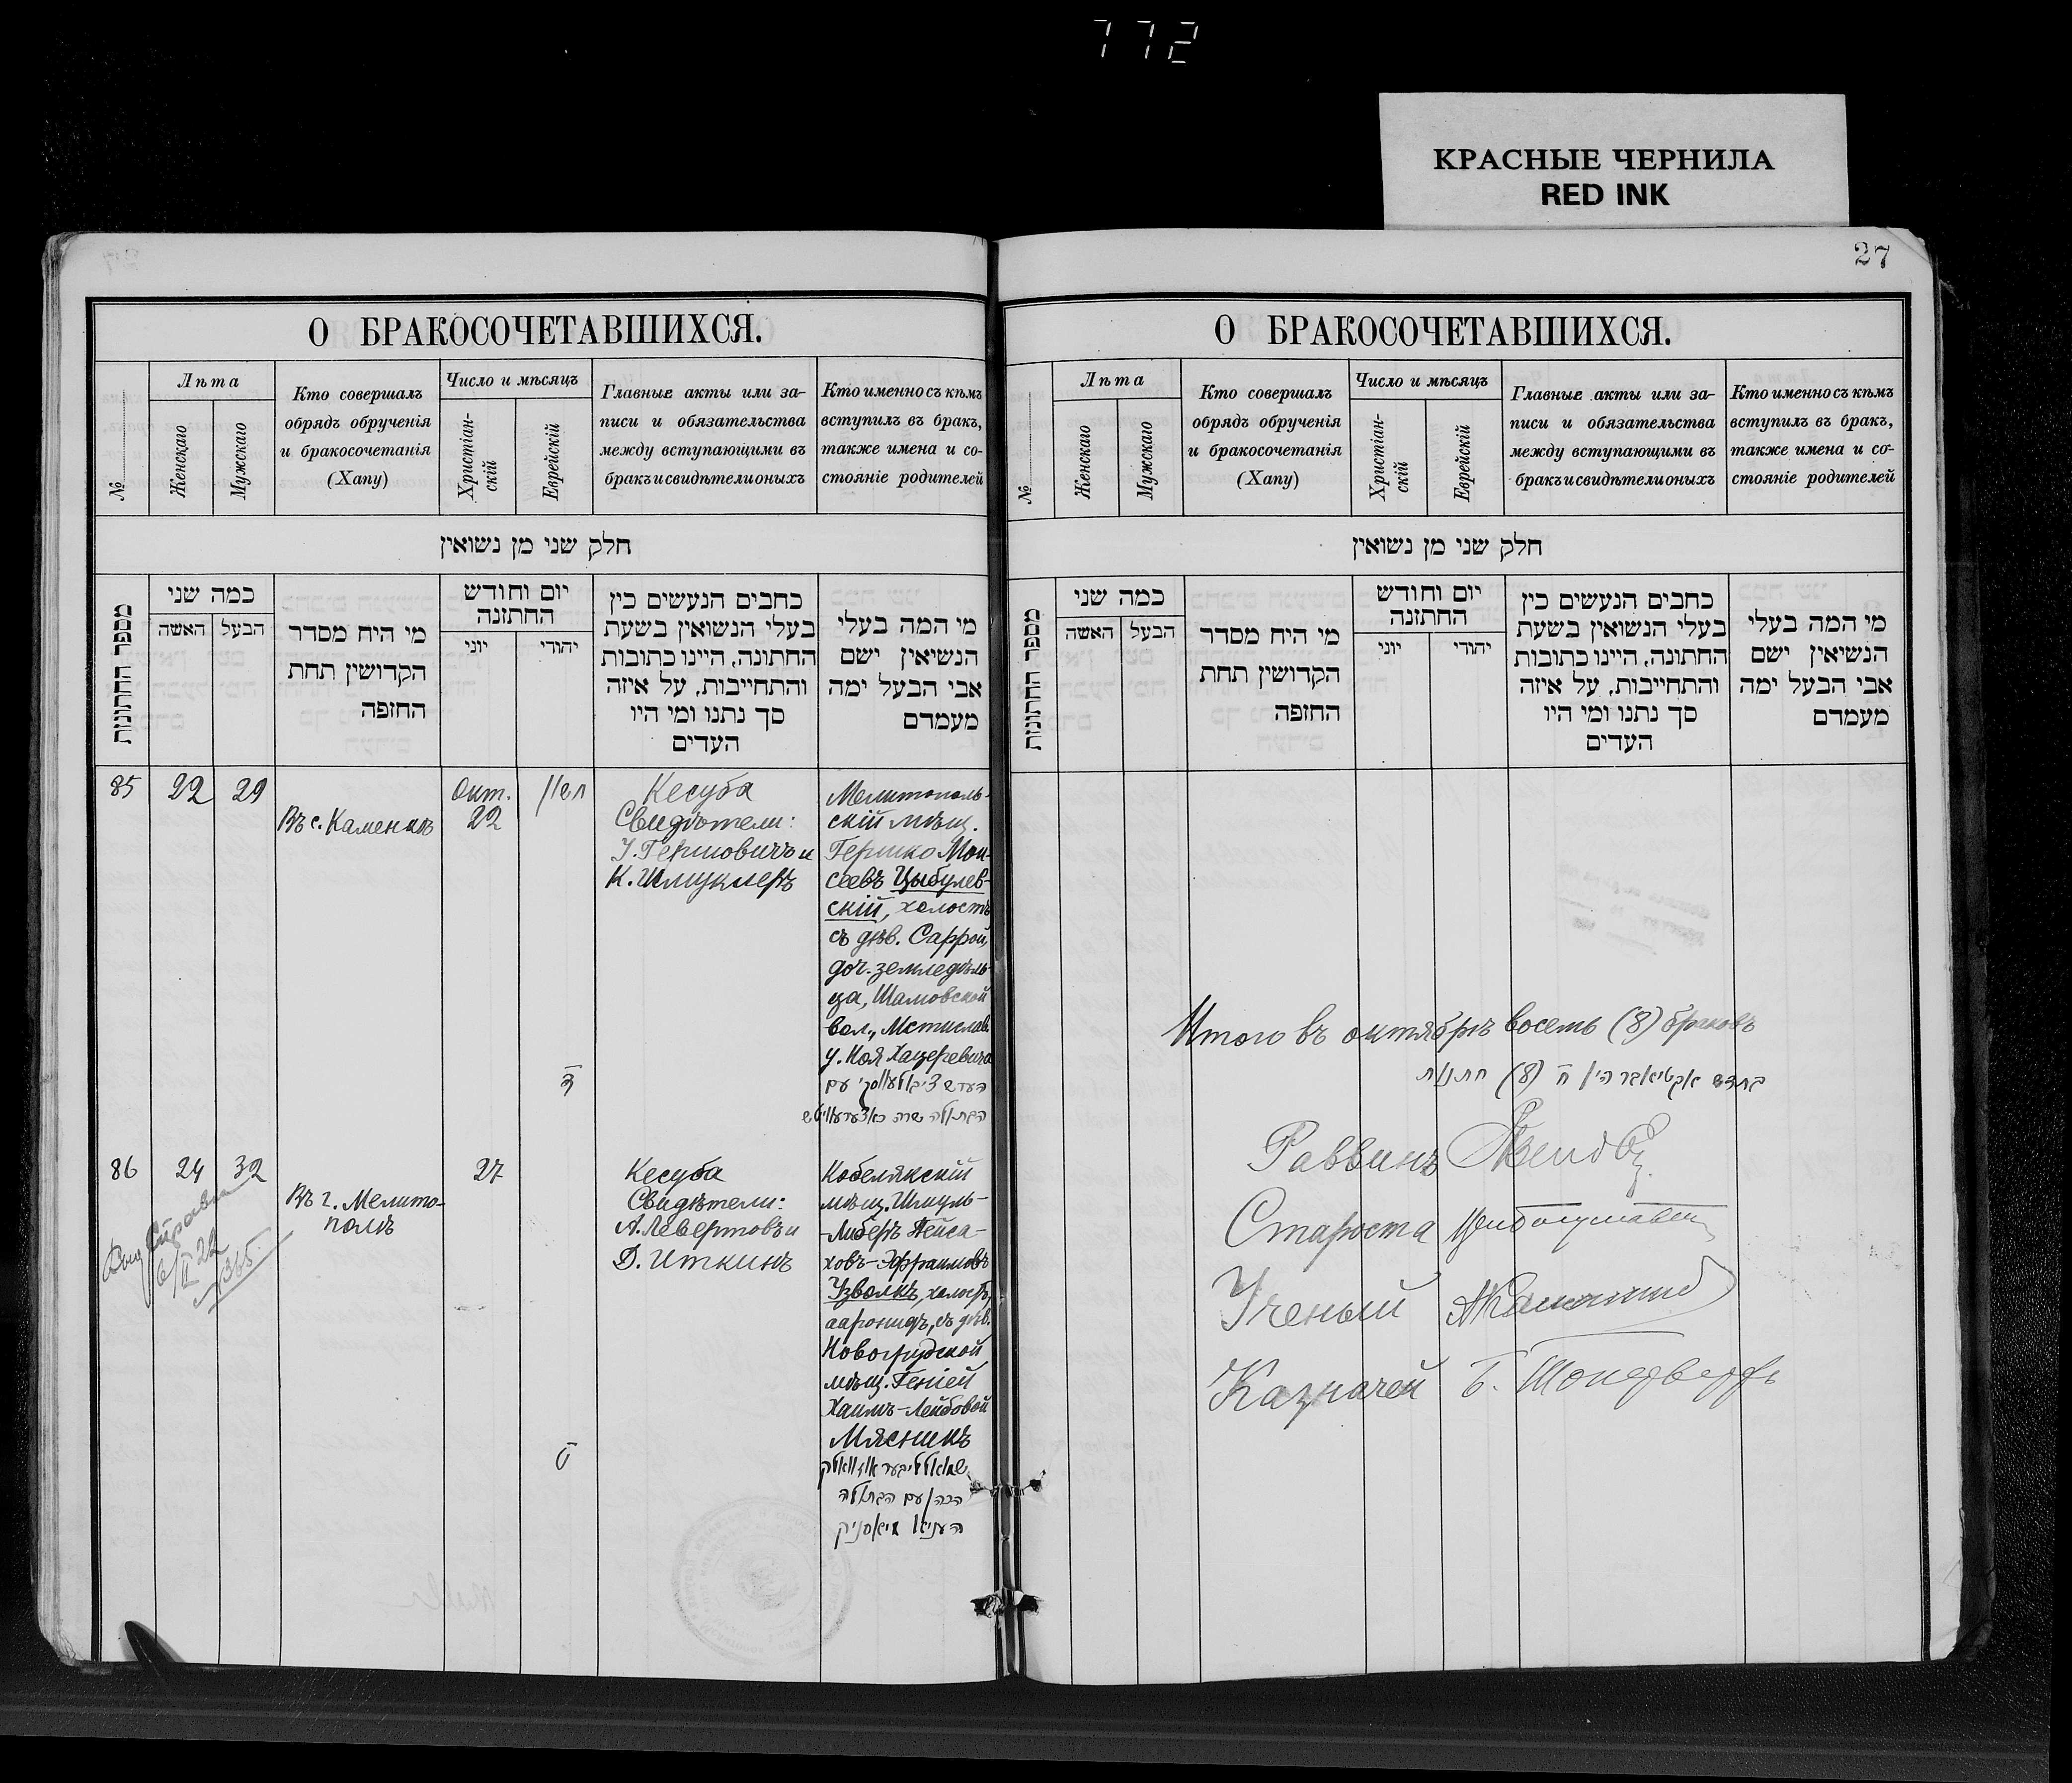 772
КРАСНЫЕ ЧЕРНИЛА
RED INK
О БРАКОСОЧЕТАВШИХСЯ.
№
Лѣта
Женскаго
Мужскаго
Кто совершалъ
обрядъ обрученія
и бракосочетанія
(Хапу)
Число и мѣсяцъ
Христіан-
скій
Еврейскій
Главные акты или за-
писи и обязательства
между вступающими въ
бракъ и свидѣтели оныхъ
Кто именно съ кѣмъ
вступилъ въ бракъ,
также имена и со-
стояніе родителей
חלק שני מן נשואין
מספר החתונות
כמה שני
האשה
הבעל
מי היח מסדר
הקדושין תחת
החופה
יום וחודש
החתונה
יוני
יהודי
כתבים הנעשים בין
בעלי הנשואין בשעת
החתונה, היינו כתובות
והתחייבות, על איזה
סך נתנו ומי היו
העדים
מי המה בעלי
הנשיאין ישם
אבי הבעל ימה
מעמדם
85
22
29
Въ с. Каменкѣ
Окт.
22
Кесуба
Свидѣтели:
У. Гершовичъ и
К. Шмуклеръ
Мелитополь-
скій мѣщ.
Гершко Мои-
сеевъ Цыбулев-
скій, холостъ
съ дѣв. Саррой,
доч. земледѣль-
ца, Шамовской
вол., Мстислав.
у. Ноя Хацеревича
86
24
32
Въ г. Мелито-
полѣ
27
Кесуба
Свидѣтели:
А. Левертовъ и
Д. Иткинъ
Кобелякскій
мѣщ. Шмуль-
-Либеръ Пейса-
ховъ-Эфраимовъ
Узволкъ, холостъ,
ааронидъ, съ дѣв.
Новогрудской
мѣщ. Геніей
Хаимъ-Лейбовой
Мясникъ
הכהן עם הבתולה
העניא מיאסניק
Справка
6/II 22
365
27
О БРАКОСОЧЕТАВШИХСЯ.
№
Лѣта
Женскаго
Мужскаго
Кто совершалъ
обрядъ обрученія
и бракосочетанія
(Хапу)
Число и мѣсяцъ
Христіан-
скій
Еврейскій
Главные акты или за-
писи и обязательства
между вступающими въ
бракъ и свидѣтели оныхъ
Кто именно съ кѣмъ
вступилъ въ бракъ,
также имена и со-
стояніе родителей
חלק שני מן נשואין
מספר החתונות
כמה שני
האשה
הבעל
מי היח מסדר
הקדושין תחת
החופה
יום וחודש
החתונה
יוני
יהודי
כתבים הנעשים בין
בעלי הנשואין בשעת
החתונה, היינו כתובות
והתחייבות, על איזה
סך נתנו ומי היו
העדים
מי המה בעלי
הנשיאין ישם
אבי הבעל ימה
מעמדם
Итого въ октябрѣ восемь (8) браковъ
בחדש אקטיאבר היו ח (8) חתונות
Раввинъ
Староста
Ученый
Казначей